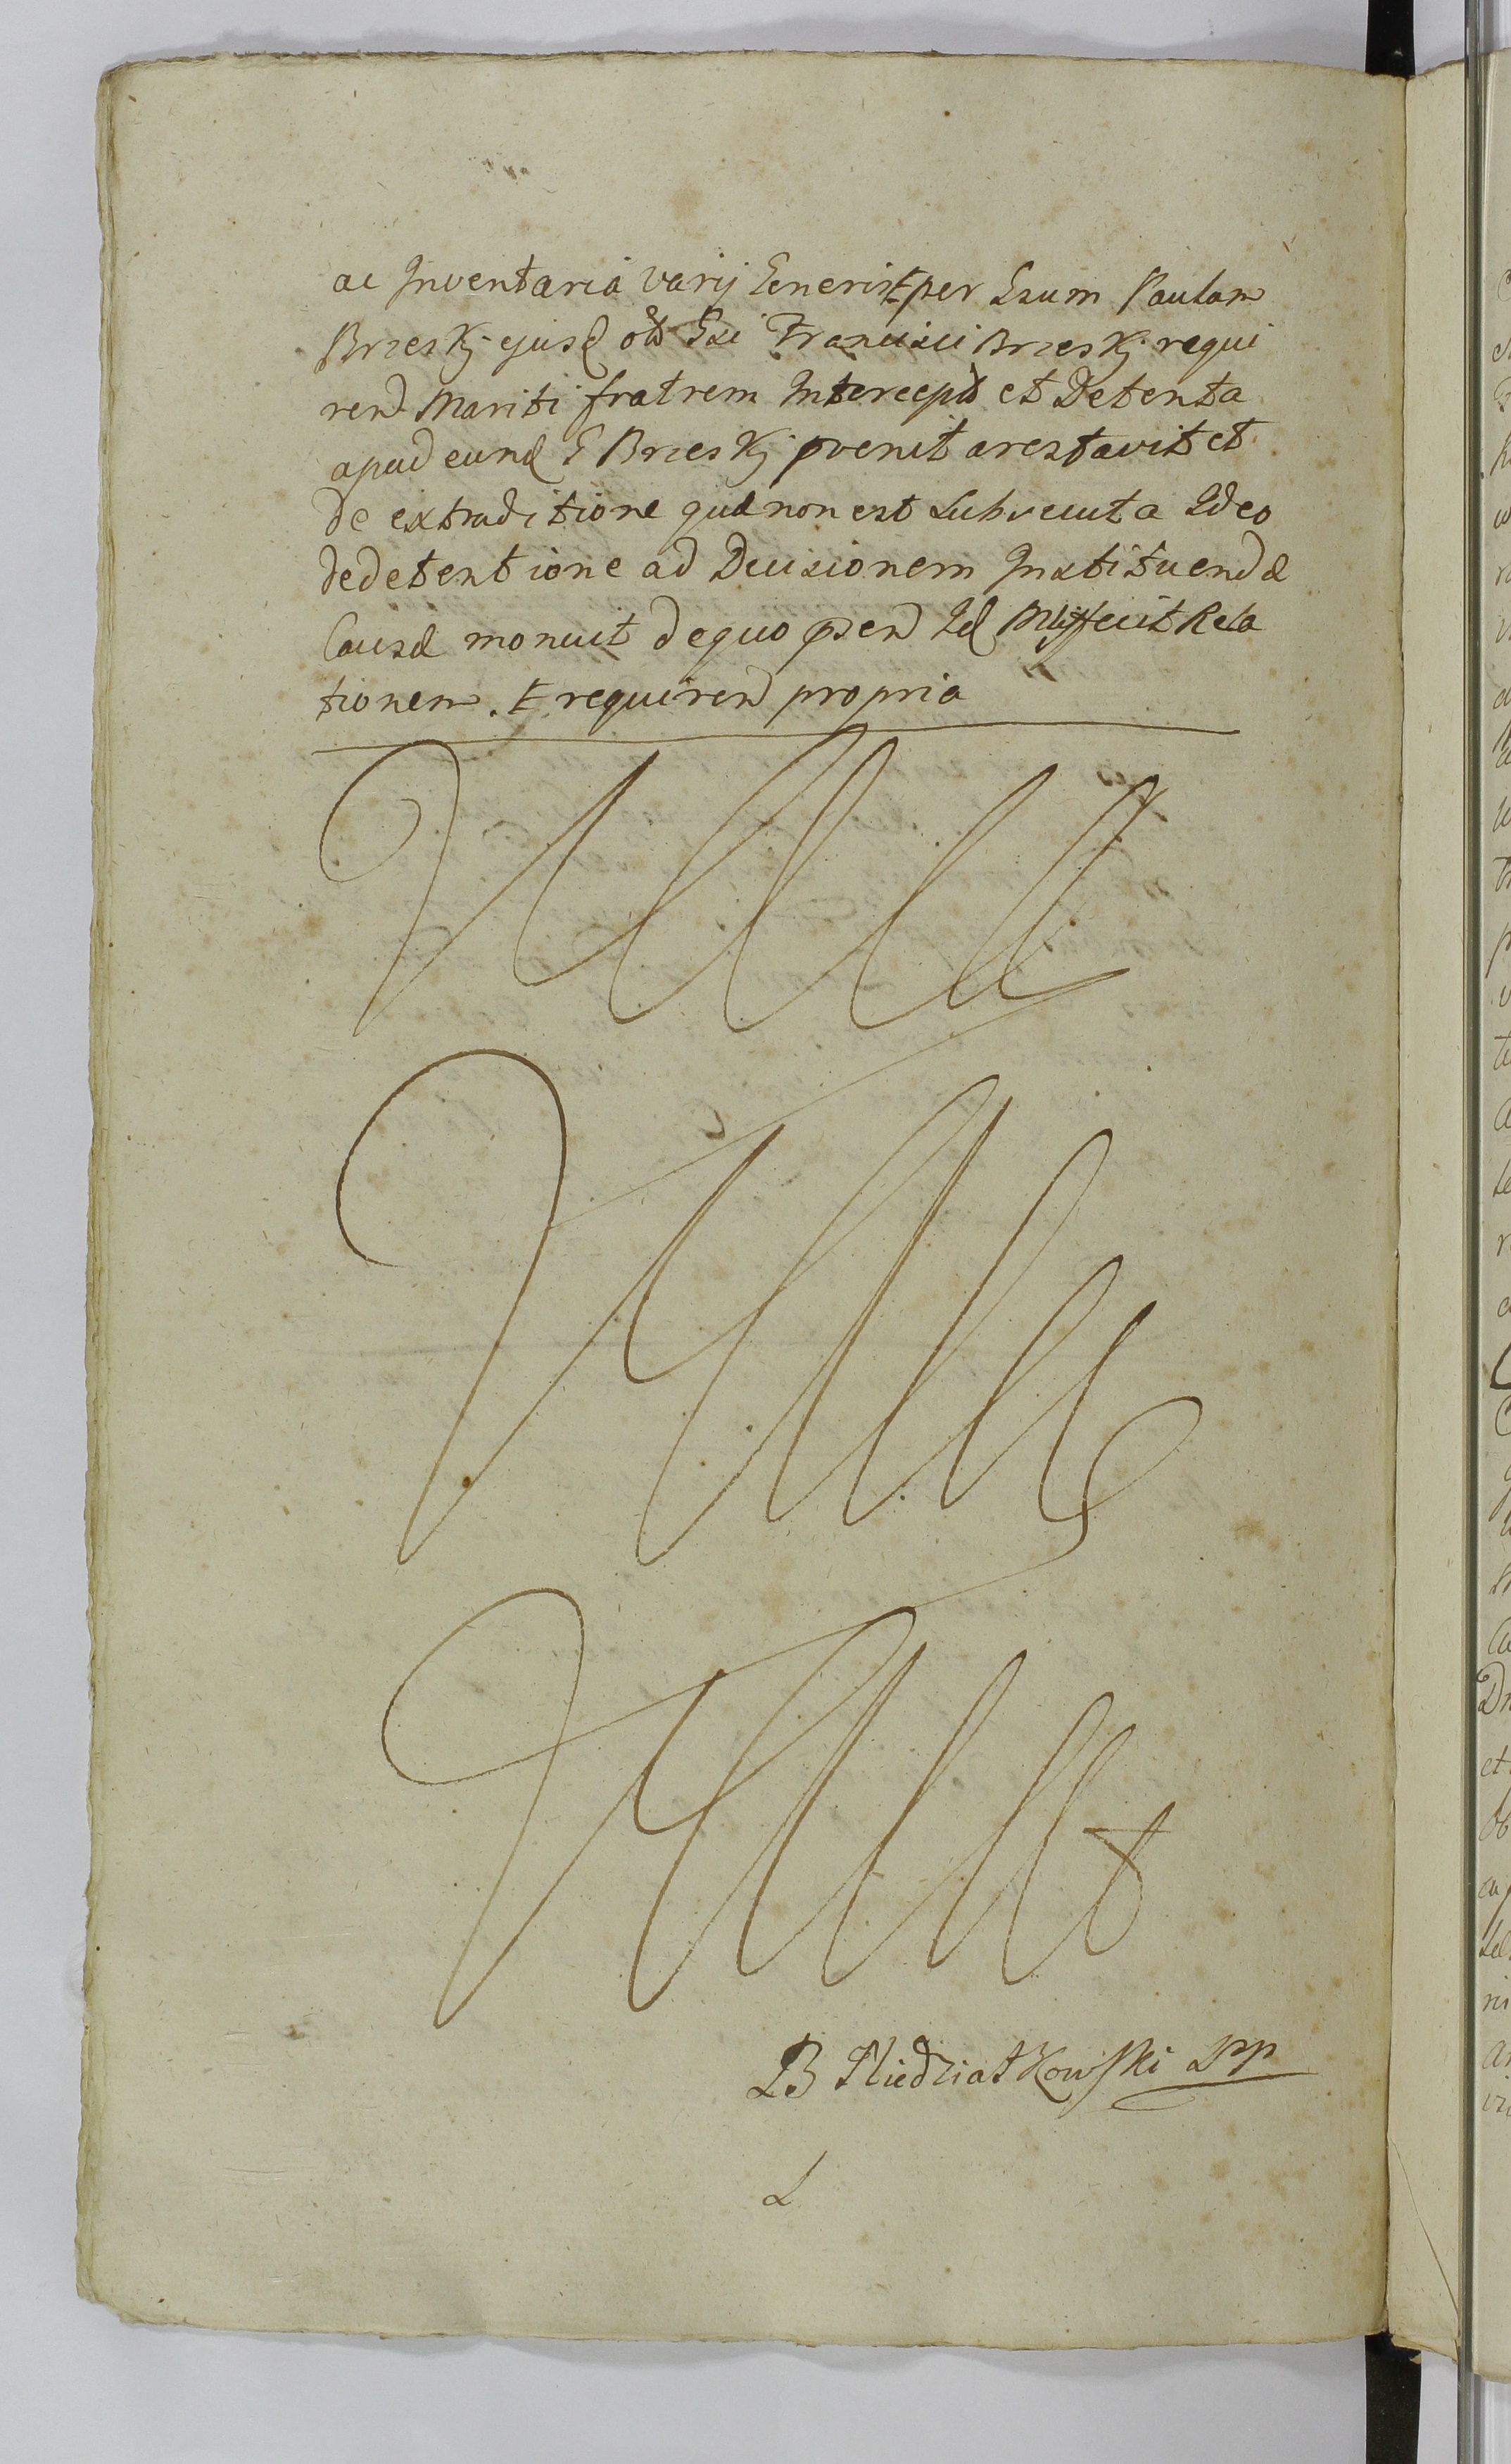 ac Inventaria varij Generis per Gsum Paulam
Brzeskj ejusd Gsi Francisci Brzeskj requi
ren Mariti fratrem Intercepta et Detenta
apud eund G Brzeskj pvenit arestavit et
de extraditione quæ non est Subsecuta Ideo
de detentione ad Decisionem Instituendæ
Causæ monuit de quo psen Relà
tionem. E requiren propria
B Niedziatkowski